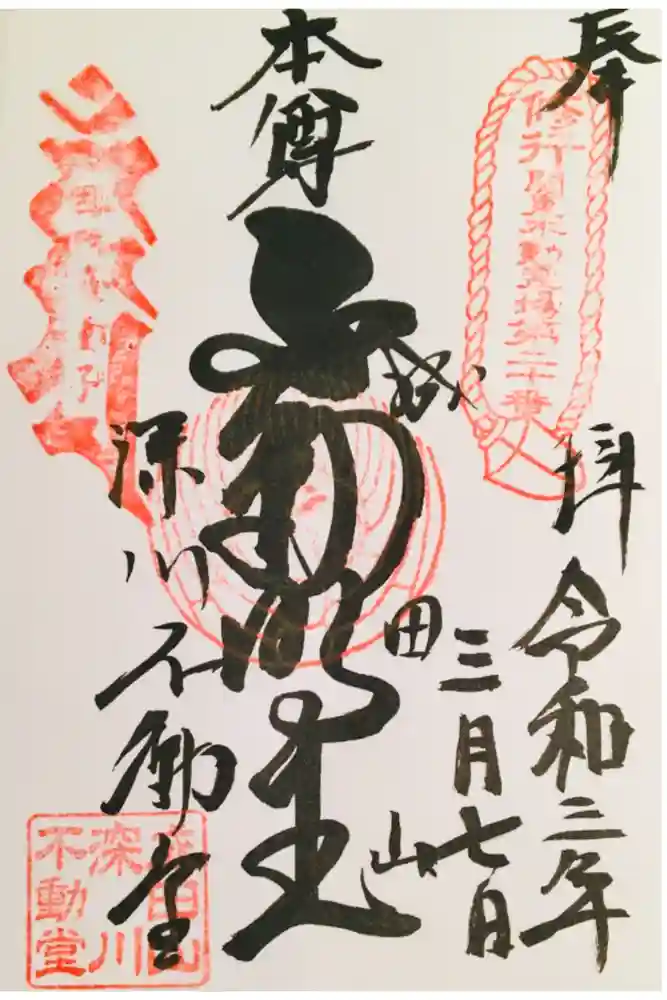 奉拝
令和三年
三月七日
関東不動霊場第二十番
成田山
本尊
不動明王
深川不動堂
成田山
深川
不動堂